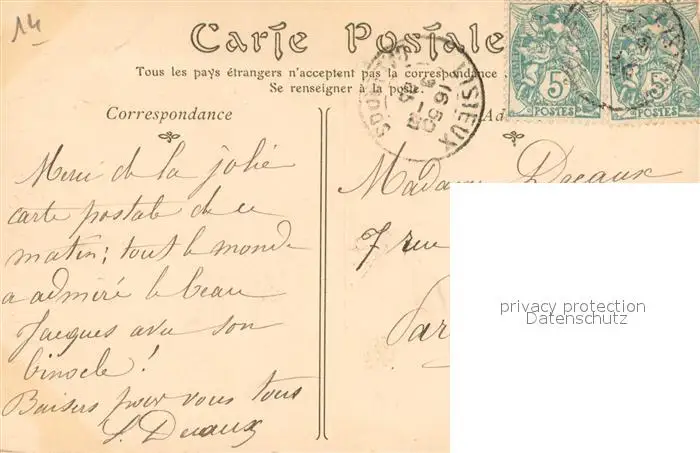 14
Carte Postale
Tous les pays étrangers n'acceptent pas la correspondance
Se renseigner à la poste.
Correspondance
Ad
LISIEUX
CALVADOS
16 50
5c
POSTES
5c
POSTES
Merci de la jolie
carte postale de ce
matin; tout le monde
a admiré le beau
Jacques avec son
binocle!
Baisers pour vous tous
Madame
7 rue
Par
privacy protection
Datenschutz